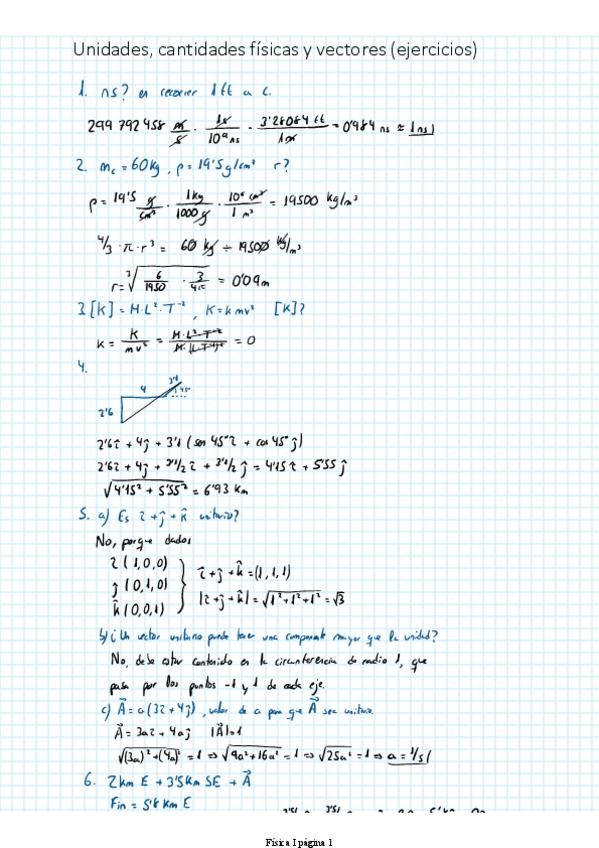 Unidades, cantidades físicas y vectores (ejercicios)
1. ns? en recorrer 1 ft a c.
299 792 458 m/s · 1s/10⁹ ns · 3'28084 ft/1m = 0'984 ns ≈ 1ns
2. mc = 60 kg, ρ = 19'5 g/cm³ r?
ρ = 19'5 g/cm³ · 1kg/1000g · 10⁶ cm³/1 m³ = 19500 kg/m³
4/3 · π · r³ = 60 kg ÷ 19500 kg/m³
r = ³√(6/1950 · 3/4π) = 0'09 m
3. [K] = M·L²·T⁻², K = k mv² [k]?
k = K/mv² = M·L²·T⁻²/M·(L·T⁻¹)² = 0
4.
4 3'1 45°
2'6
2'6î + 4ĵ + 3'1 (sen 45° î + cos 45° ĵ)
2'6î + 4ĵ + 3'1/√2 î + 3'1/√2 ĵ = 4'15 î + 5'55 ĵ
√(4'15² + 5'55²) = 6'93 km
5. a) Es î + ĵ + k̂ unitario?
No, porque dados
î (1,0,0)
ĵ (0,1,0)
k̂ (0,0,1)
î + ĵ + k̂ = (1,1,1)
|î + ĵ + k̂| = √(1² + 1² + 1²) = √3
b) ¿Un vector unitario puede tener una componente mayor que la unidad?
No, debe estar contenido en la circunferencia de radio 1, que
pasa por los puntos -1 y 1 de cada eje.
c) A⃗ = a(3î + 4ĵ), valor de a para que A⃗ sea unitario
A⃗ = 3aî + 4aĵ |A⃗| = 1
√((3a)² + (4a)²) = 1 ⇒ √(9a² + 16a²) = 1 ⇒ √(25a²) = 1 ⇒ a = 1/5
6. 2 km E + 3'5 km SE + A⃗
Fin = 5'8 km E
Física I página 1